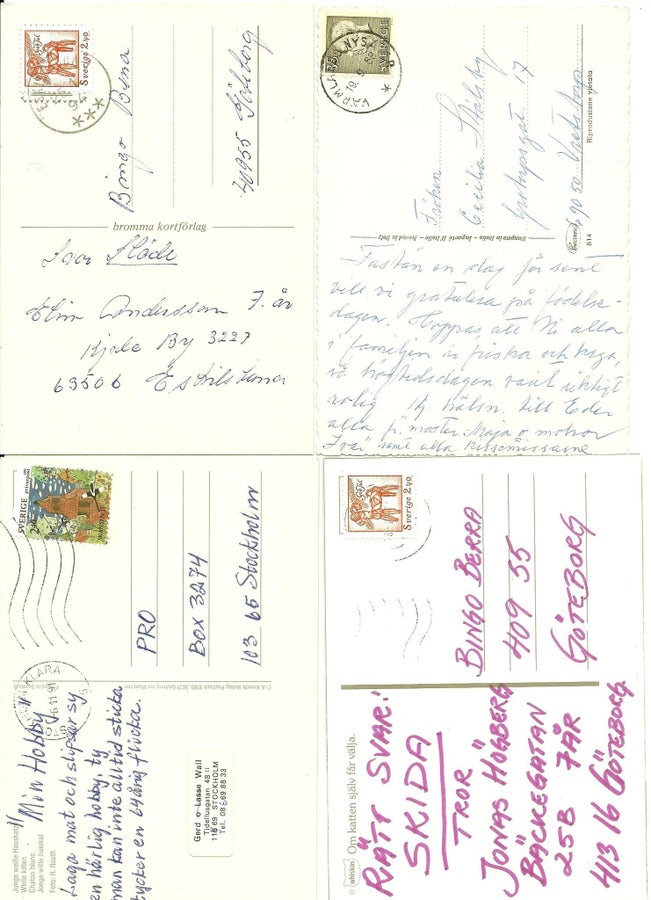 Sverige 2,40
Bingo Byrna
40955 Göteborg
bromma kortförlag
Svar Släde
Elin Andersson 7. år
By 3227
63506 Eskilstuna
SVERIGE
VÄRMLANDS NYSÄ
Fröken
Cecilia
17
59050 Vretstorp
Riproduzione vietata
Stampato in Italia - Importé D'Italie - Printed in Italy
814
Fastän en dag för sent
vill vi gratulera på födelse-
dagen. Hoppas att Ni alla
i familjen är friska och
högtidsdagen varit riktigt
rolig. Hj. hälsn. till Eder
alla fr. moster Maja o. morbror
Ivar samt alla kissemissarne
SVERIGE
PRO
Box 3274
103 65 Stockholm
KLARA
"Min Hobby"
Laga mat och slipsar sy
en härlig hobby, ty
man kan inte alltid sticka
tycker en 64åring flicka.
Gerd o Lasse Wall
Tideliusgatan 48 II
118 69 STOCKHOLM
Tel. 08/69 88 33
Junge weiße Hauskatze
White kitten
Chaton blanc
Jonge witte huiskat
Foto: R. Rauth
Sverige 2,40
BINGO BERRA
409 55
GÖTEBORG
whiskas Om katten själv får välja.
RÄTT SVAR:
SKIDA
TROR
JONAS HÖGBERG
BÄCKEGATAN
25B 7ÅR
413 16 GÖTEBORG.